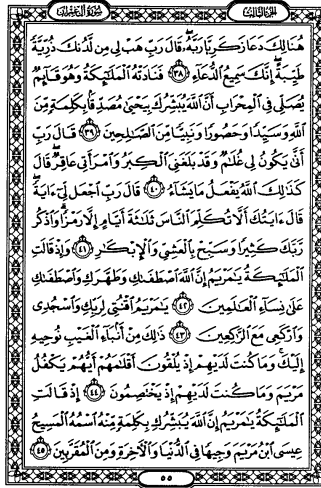 سورة آل عمران
الجزء الثالث
هُنَالِكَ دَعَا زَكَرِيَّا رَبَّهُۥ ۖ قَالَ رَبِّ هَبْ لِى مِن لَّدُنكَ ذُرِّيَّةً
طَيِّبَةً ۖ إِنَّكَ سَمِيعُ ٱلدُّعَآءِ ٣٨ فَنَادَتْهُ ٱلْمَلَـٰٓئِكَةُ وَهُوَ قَآئِمٌ
يُصَلِّى فِى ٱلْمِحْرَابِ أَنَّ ٱللَّهَ يُبَشِّرُكَ بِيَحْيَىٰ مُصَدِّقًۢا بِكَلِمَةٍ مِّنَ
ٱللَّهِ وَسَيِّدًا وَحَصُورًا وَنَبِيًّا مِّنَ ٱلصَّـٰلِحِينَ ٣٩ قَالَ رَبِّ
أَنَّىٰ يَكُونُ لِى غُلَـٰمٌ وَقَدْ بَلَغَنِىَ ٱلْكِبَرُ وَٱمْرَأَتِى عَاقِرٌ ۖ قَالَ
كَذَٰلِكَ ٱللَّهُ يَفْعَلُ مَا يَشَآءُ ٤٠ قَالَ رَبِّ ٱجْعَل لِّىٓ ءَايَةً ۖ
قَالَ ءَايَتُكَ أَلَّا تُكَلِّمَ ٱلنَّاسَ ثَلَـٰثَةَ أَيَّامٍ إِلَّا رَمْزًا ۗ وَٱذْكُر
رَّبَّكَ كَثِيرًا وَسَبِّحْ بِٱلْعَشِىِّ وَٱلْإِبْكَـٰرِ ٤١ وَإِذْ قَالَتِ
ٱلْمَلَـٰٓئِكَةُ يَـٰمَرْيَمُ إِنَّ ٱللَّهَ ٱصْطَفَىٰكِ وَطَهَّرَكِ وَٱصْطَفَىٰكِ
عَلَىٰ نِسَآءِ ٱلْعَـٰلَمِينَ ٤٢ يَـٰمَرْيَمُ ٱقْنُتِى لِرَبِّكِ وَٱسْجُدِى
وَٱرْكَعِى مَعَ ٱلرَّٰكِعِينَ ٤٣ ذَٰلِكَ مِنْ أَنۢبَآءِ ٱلْغَيْبِ نُوحِيهِ
إِلَيْكَ ۚ وَمَا كُنتَ لَدَيْهِمْ إِذْ يُلْقُونَ أَقْلَـٰمَهُمْ أَيُّهُمْ يَكْفُلُ
مَرْيَمَ وَمَا كُنتَ لَدَيْهِمْ إِذْ يَخْتَصِمُونَ ٤٤ إِذْ قَالَتِ
ٱلْمَلَـٰٓئِكَةُ يَـٰمَرْيَمُ إِنَّ ٱللَّهَ يُبَشِّرُكِ بِكَلِمَةٍ مِّنْهُ ٱسْمُهُ ٱلْمَسِيحُ
عِيسَى ٱبْنُ مَرْيَمَ وَجِيهًا فِى ٱلدُّنْيَا وَٱلْـَٔاخِرَةِ وَمِنَ ٱلْمُقَرَّبِينَ ٤٥
٥٥